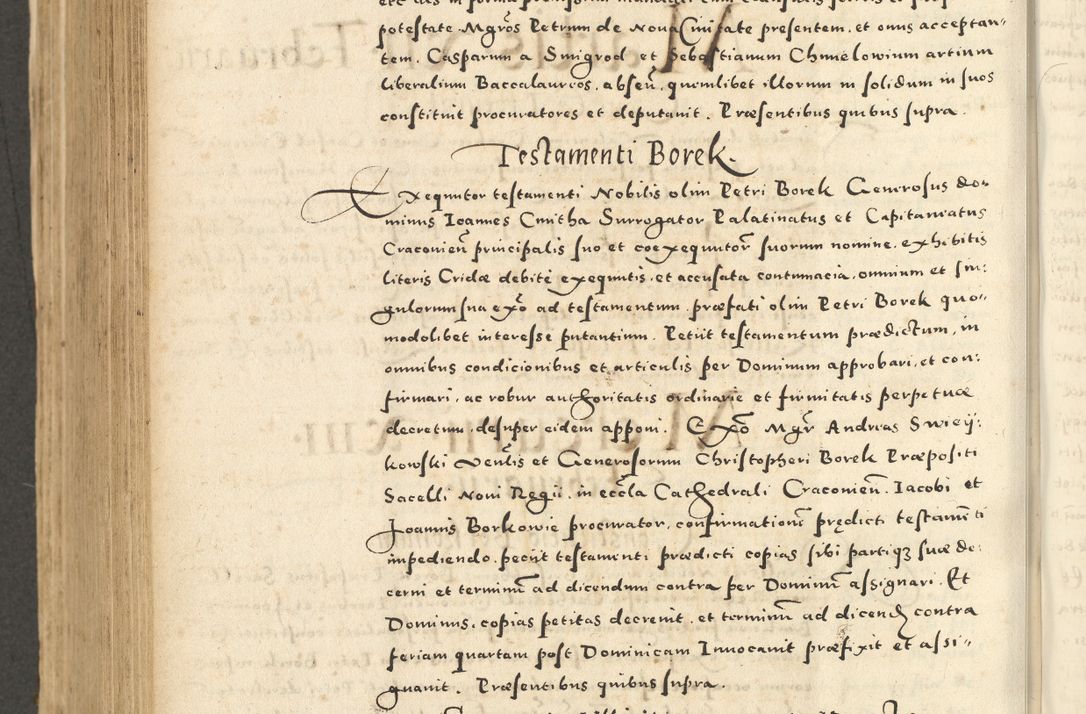 potestate Mgr̃os Petrum de Nova Civitate presentem, et onus acceptan-
tem, Casparum a Smigrod et Sebastianum Chmelowium artium
liberalium Baccalaureos, abseñ, quemlibet illorum in solidum in suos
constituit procuratores et deputavit. Præsentibus quibus supra.
Testamenti Borek.
Exequutor testamenti Nobilis olim Petri Borek Generosus Do-
minus Ioannes Cmitha Surrogator Palatinatus et Capitaneatus
Craconieñ principalis suo et coexequutor̃ suorum nomine, exhibitis
literis Cridæ debitè exequutis, et accusata contumacia, omnium et sin:
gulorum sua exõ ad testamentum præfati olim Petri Borek quo-
modolibet interesse putantium. Petiit testamentum prædictum, in
omnibus condicionibus et articulis per Dominum approbari, et con:
firmari, ac robur authoritatis ordinariæ et firmitatis perpetuæ
decretum, desuper eidem apponi. Exõ Mgr̃ Andreas Swiey:
kowski Veñlis et Generosorum Christopheri Borek Præpositi
Sacelli Novi Regii, in eccl̃a Cathedrali Craconieñ, Iacobi et
Joannis Borkowie procurator, confirmationẽ prędicti testam̃ti
impediendo, petiit testamenti prædicti copias sibi partiq3 suæ de:
cerni et terminũ ad dicendum contra per Dominũ assignari. Et
Dominus, copias petitas decrevit, et terminũ ad dicend contra
feriam quartam post Dominicam Invocavit præfixit et assi-
gnavit. Præsentibus quibus supra.